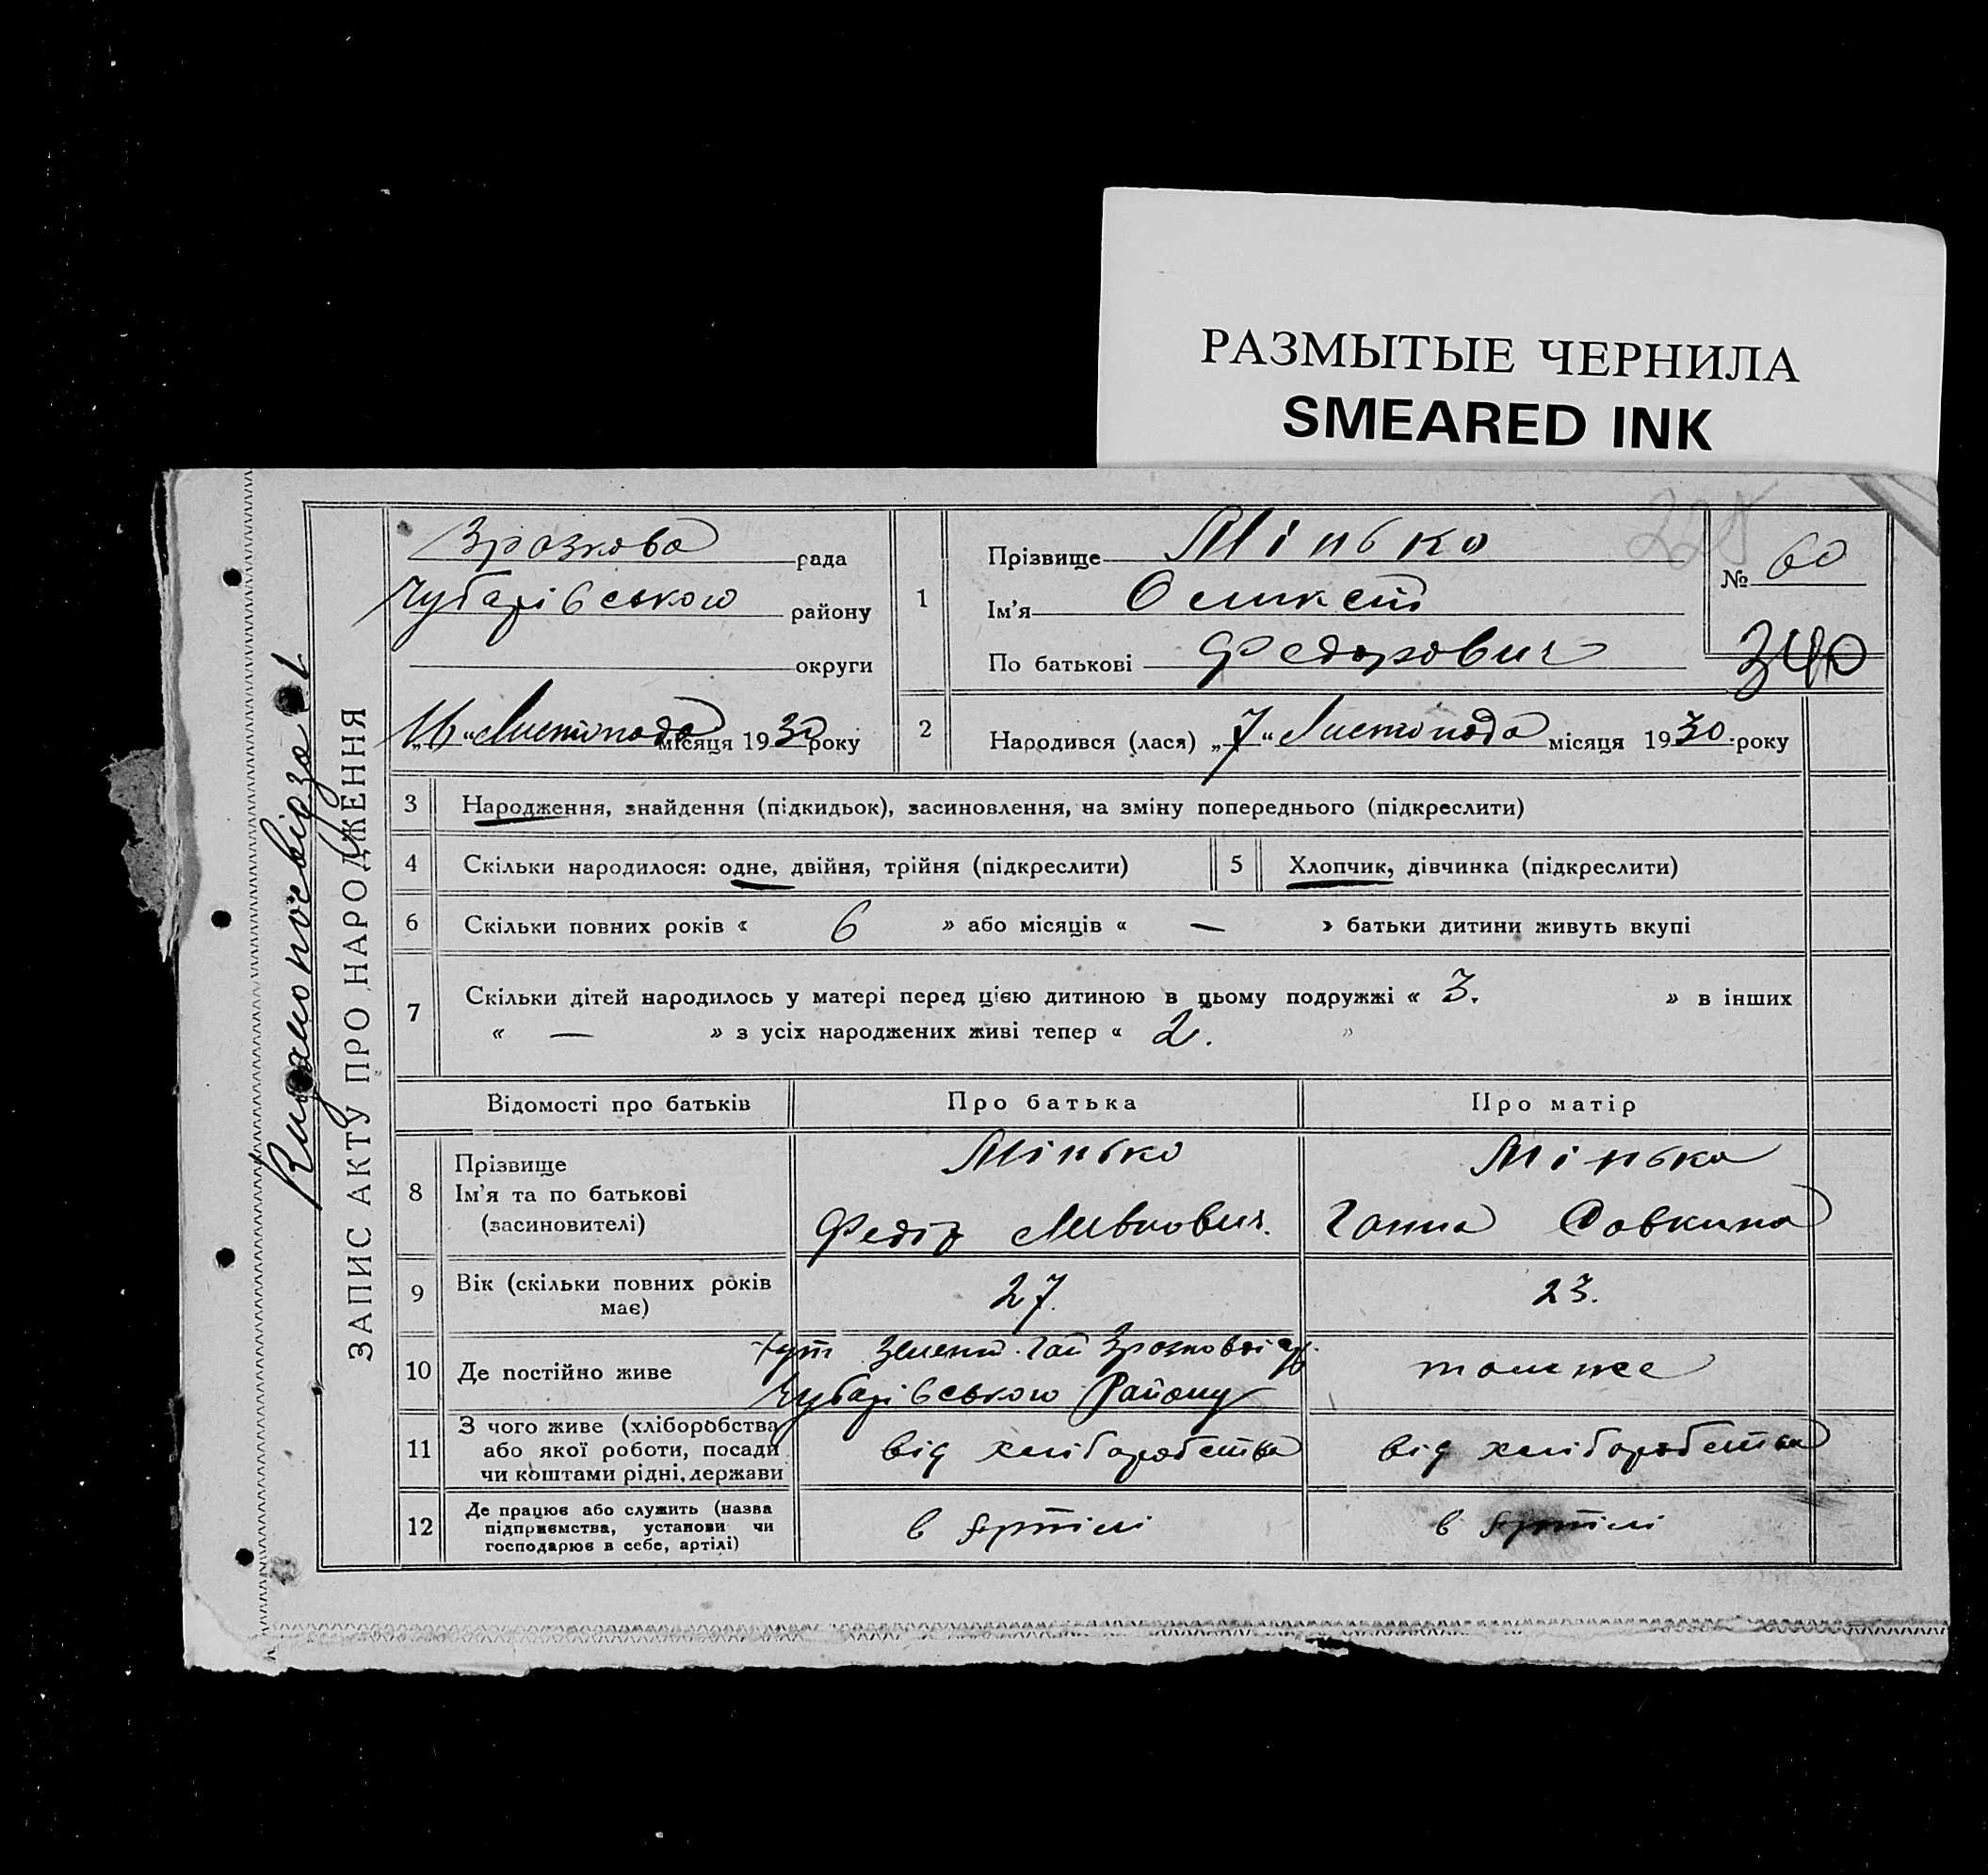 РАЗМЫТЫЕ ЧЕРНИЛА
SMEARED INK
ЗАПИС АКТУ ПРО НАРОДЖЕННЯ
Зразкова рада
Чубарівського району
округи
„16“ Листопада місяця 1930 року
1
Прізвище Мінько
Ім'я
По батькові Федорович
№ 60
340
2
Народився (лася) „7“ Листопада місяця 1930 року
3 Народження, знайдення (підкидьок), засиновлення, на зміну попереднього (підкреслити)
4 Скільки народилося: одне, двійня, трійня (підкреслити)
5 Хлопчик, дівчинка (підкреслити)
6 Скільки повних років « 6 » або місяців « — » батьки дитини живуть вкупі
7 Скільки дітей народилось у матері перед цією дитиною в цьому подружжі « 3. » в інших
« — » з усіх народжених живі тепер « 2. »
Відомості про батьків Про батька Про матір
8 Прізвище
Ім'я та по батькові
(засиновителі)
Мінько
Федір
Мінько
Ганна Савкина
9 Вік (скільки повних років
має)
27.
23.
10 Де постійно живе
хут Зелений Гай Зразкової с/р.
Чубарівського Району
також же
11 З чого живе (хліборобства
або якої роботи, посади
чи коштами рідні, держави
від хліборобства
від хліборобства
12 Де працює або служить (назва
підприємства, установи чи
господарює в себе, артілі)
в артілі
в артілі